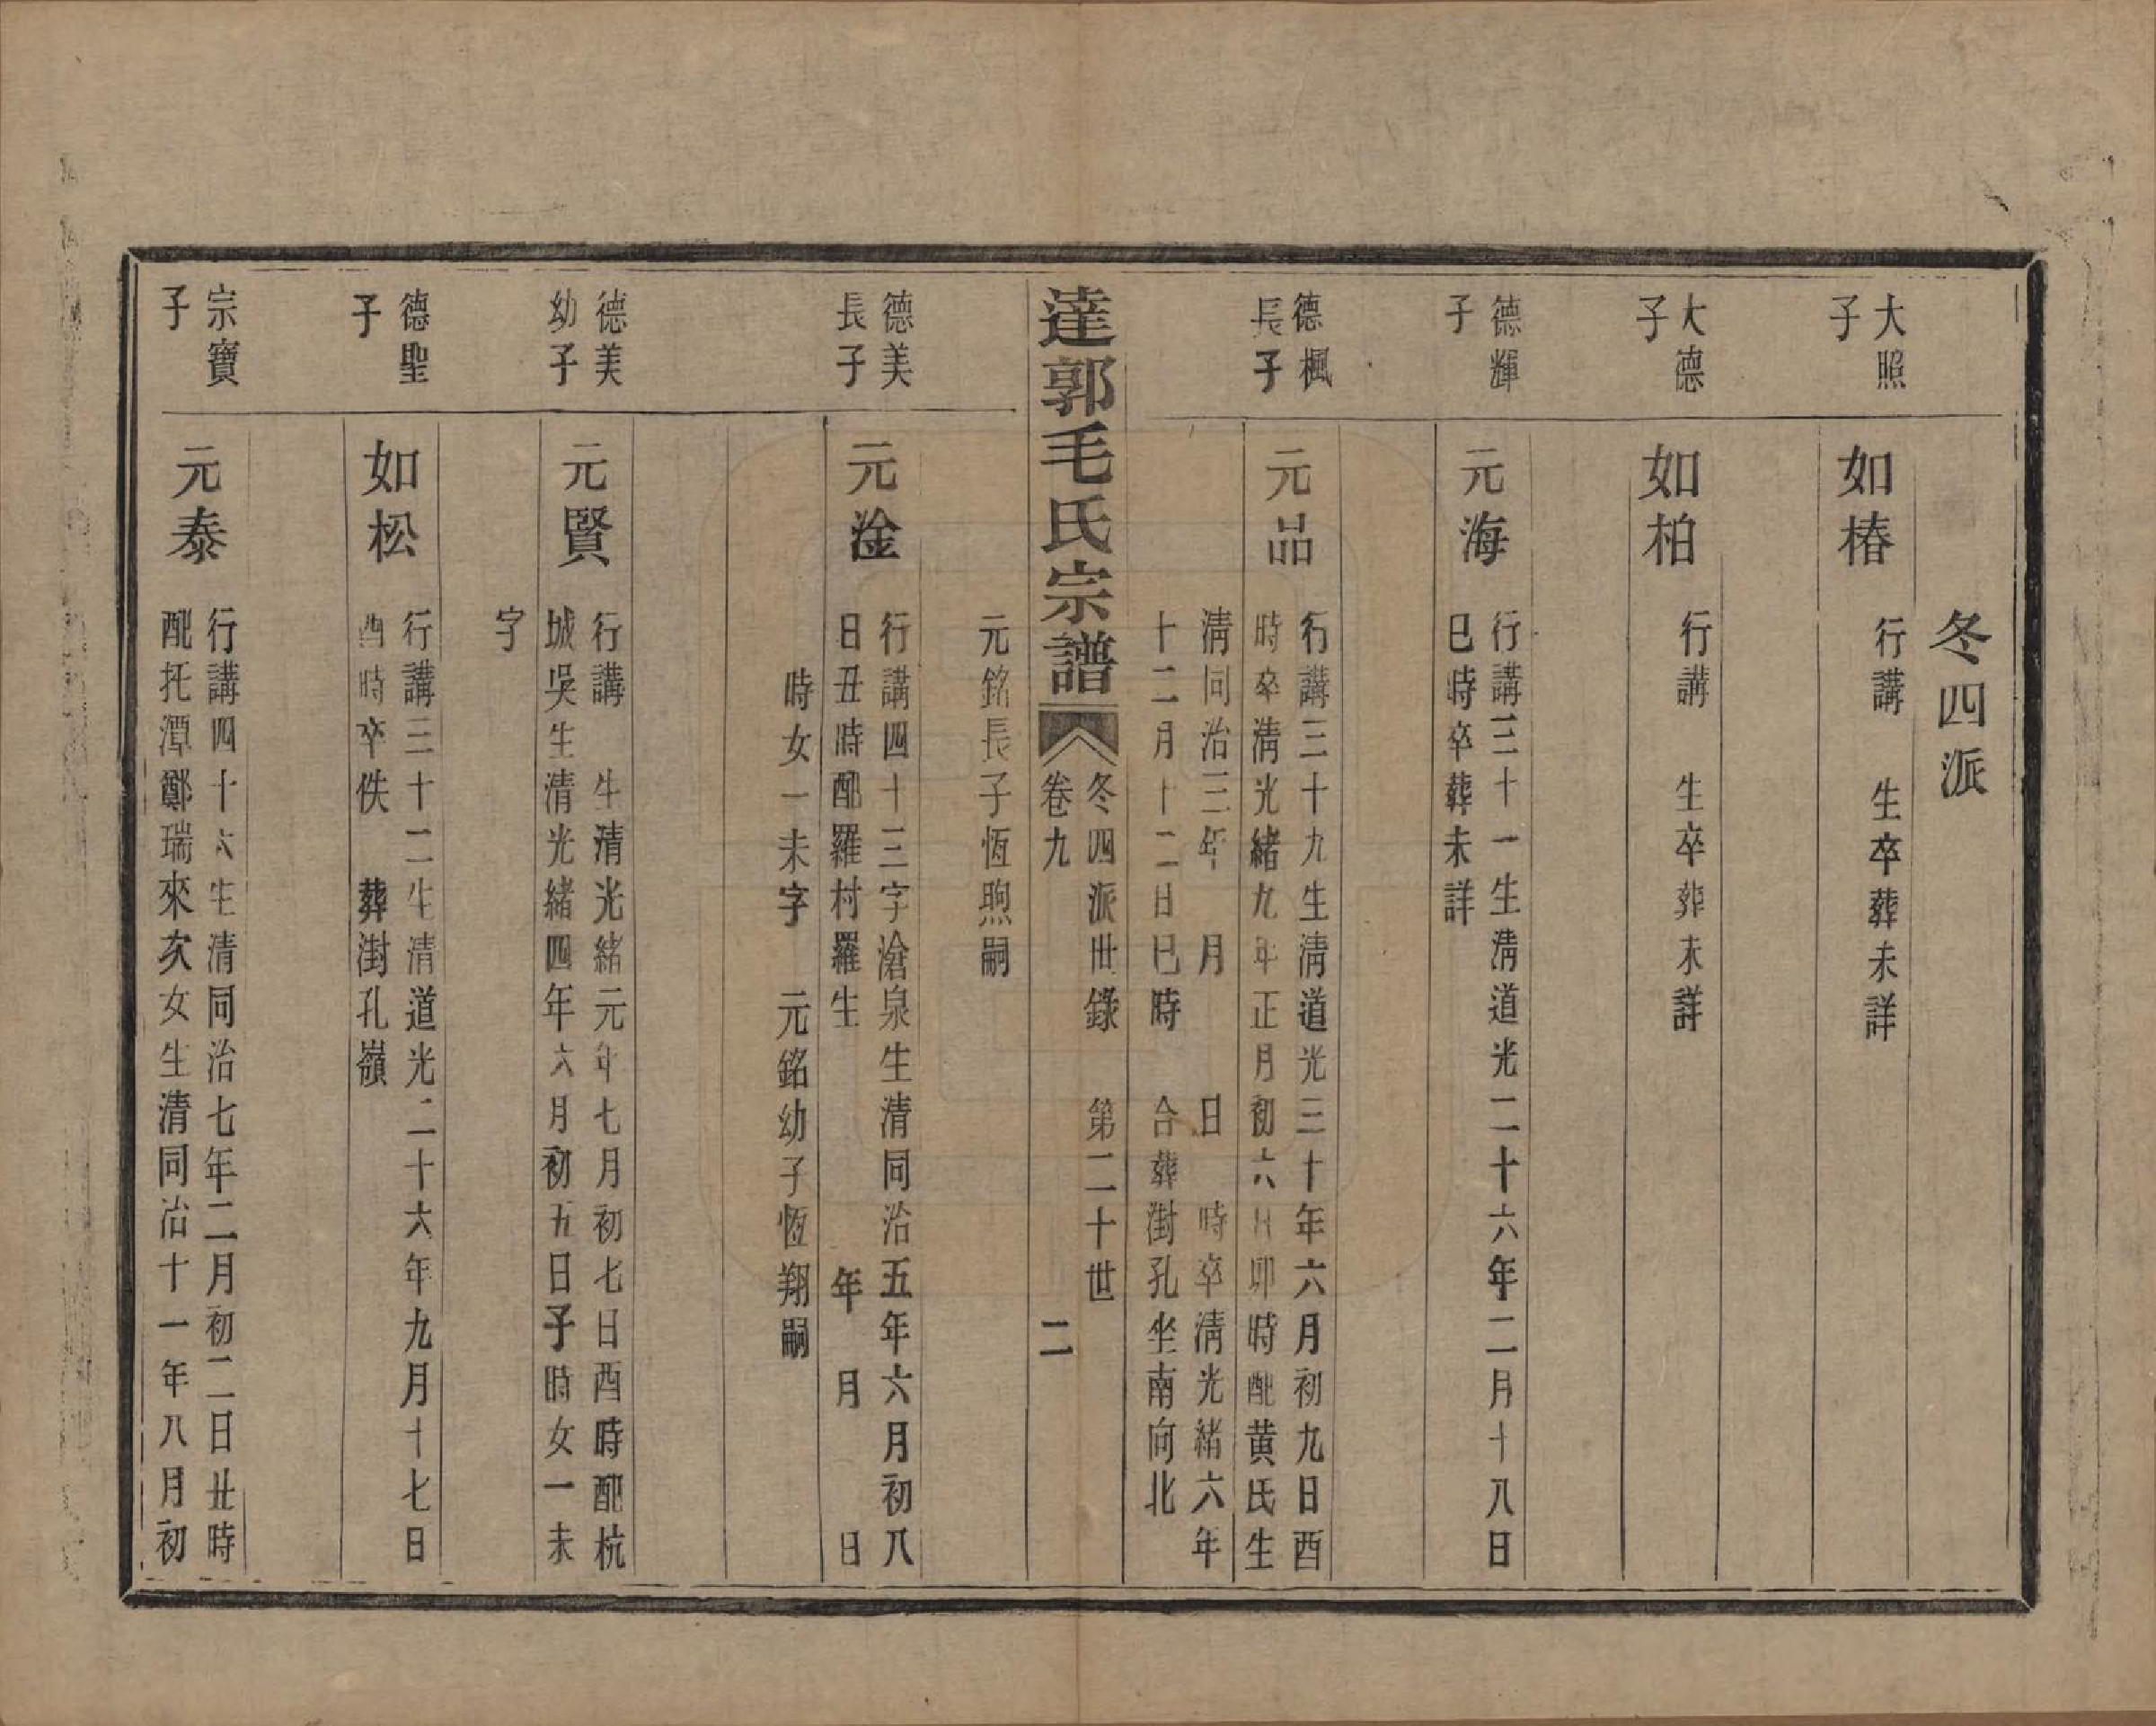 冬四派
大照
子
如椿
行講　生卒葬未詳
大德
子
如柏
行講　生卒葬未詳
德輝
子
元海
行講三十一生淸道光二十六年二月十八日
巳時卒葬未詳
德楓
長子
元品
行講三十九生淸道光三十年六月初九日酉
時卒淸光緖九年正月初六日卯時配黄氏生
淸同治三年　月　　日　時卒淸光緖六年
十二月十二日巳時　合葬澍孔坐南向北
達郭毛氏宗譜
冬四派世錄　第二十世
卷九　二
元銘長子恆煦嗣
德美
長子
元淦
行講四十三字滄泉生清同治五年六月初八
日丑時配羅村羅生　　年　月　　日
時女一未字　元銘幼子恆翔嗣
德美
幼子
元賢
行講　生清光緖元年七月初七日酉時配杭
城吳生清光緖四年六月初五日子時女一未
字
德聖
子
如松
行講三十二生清道光二十六年九月十七日
酉時卒佚　葬澍孔嶺
宗寶
子
元泰
行講四十六生清同治七年二月初二日丑時
配托潭鄭瑞來次女生清同治十一年八月初